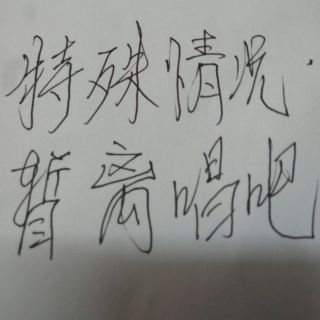 特殊情况.
暂离唱吧